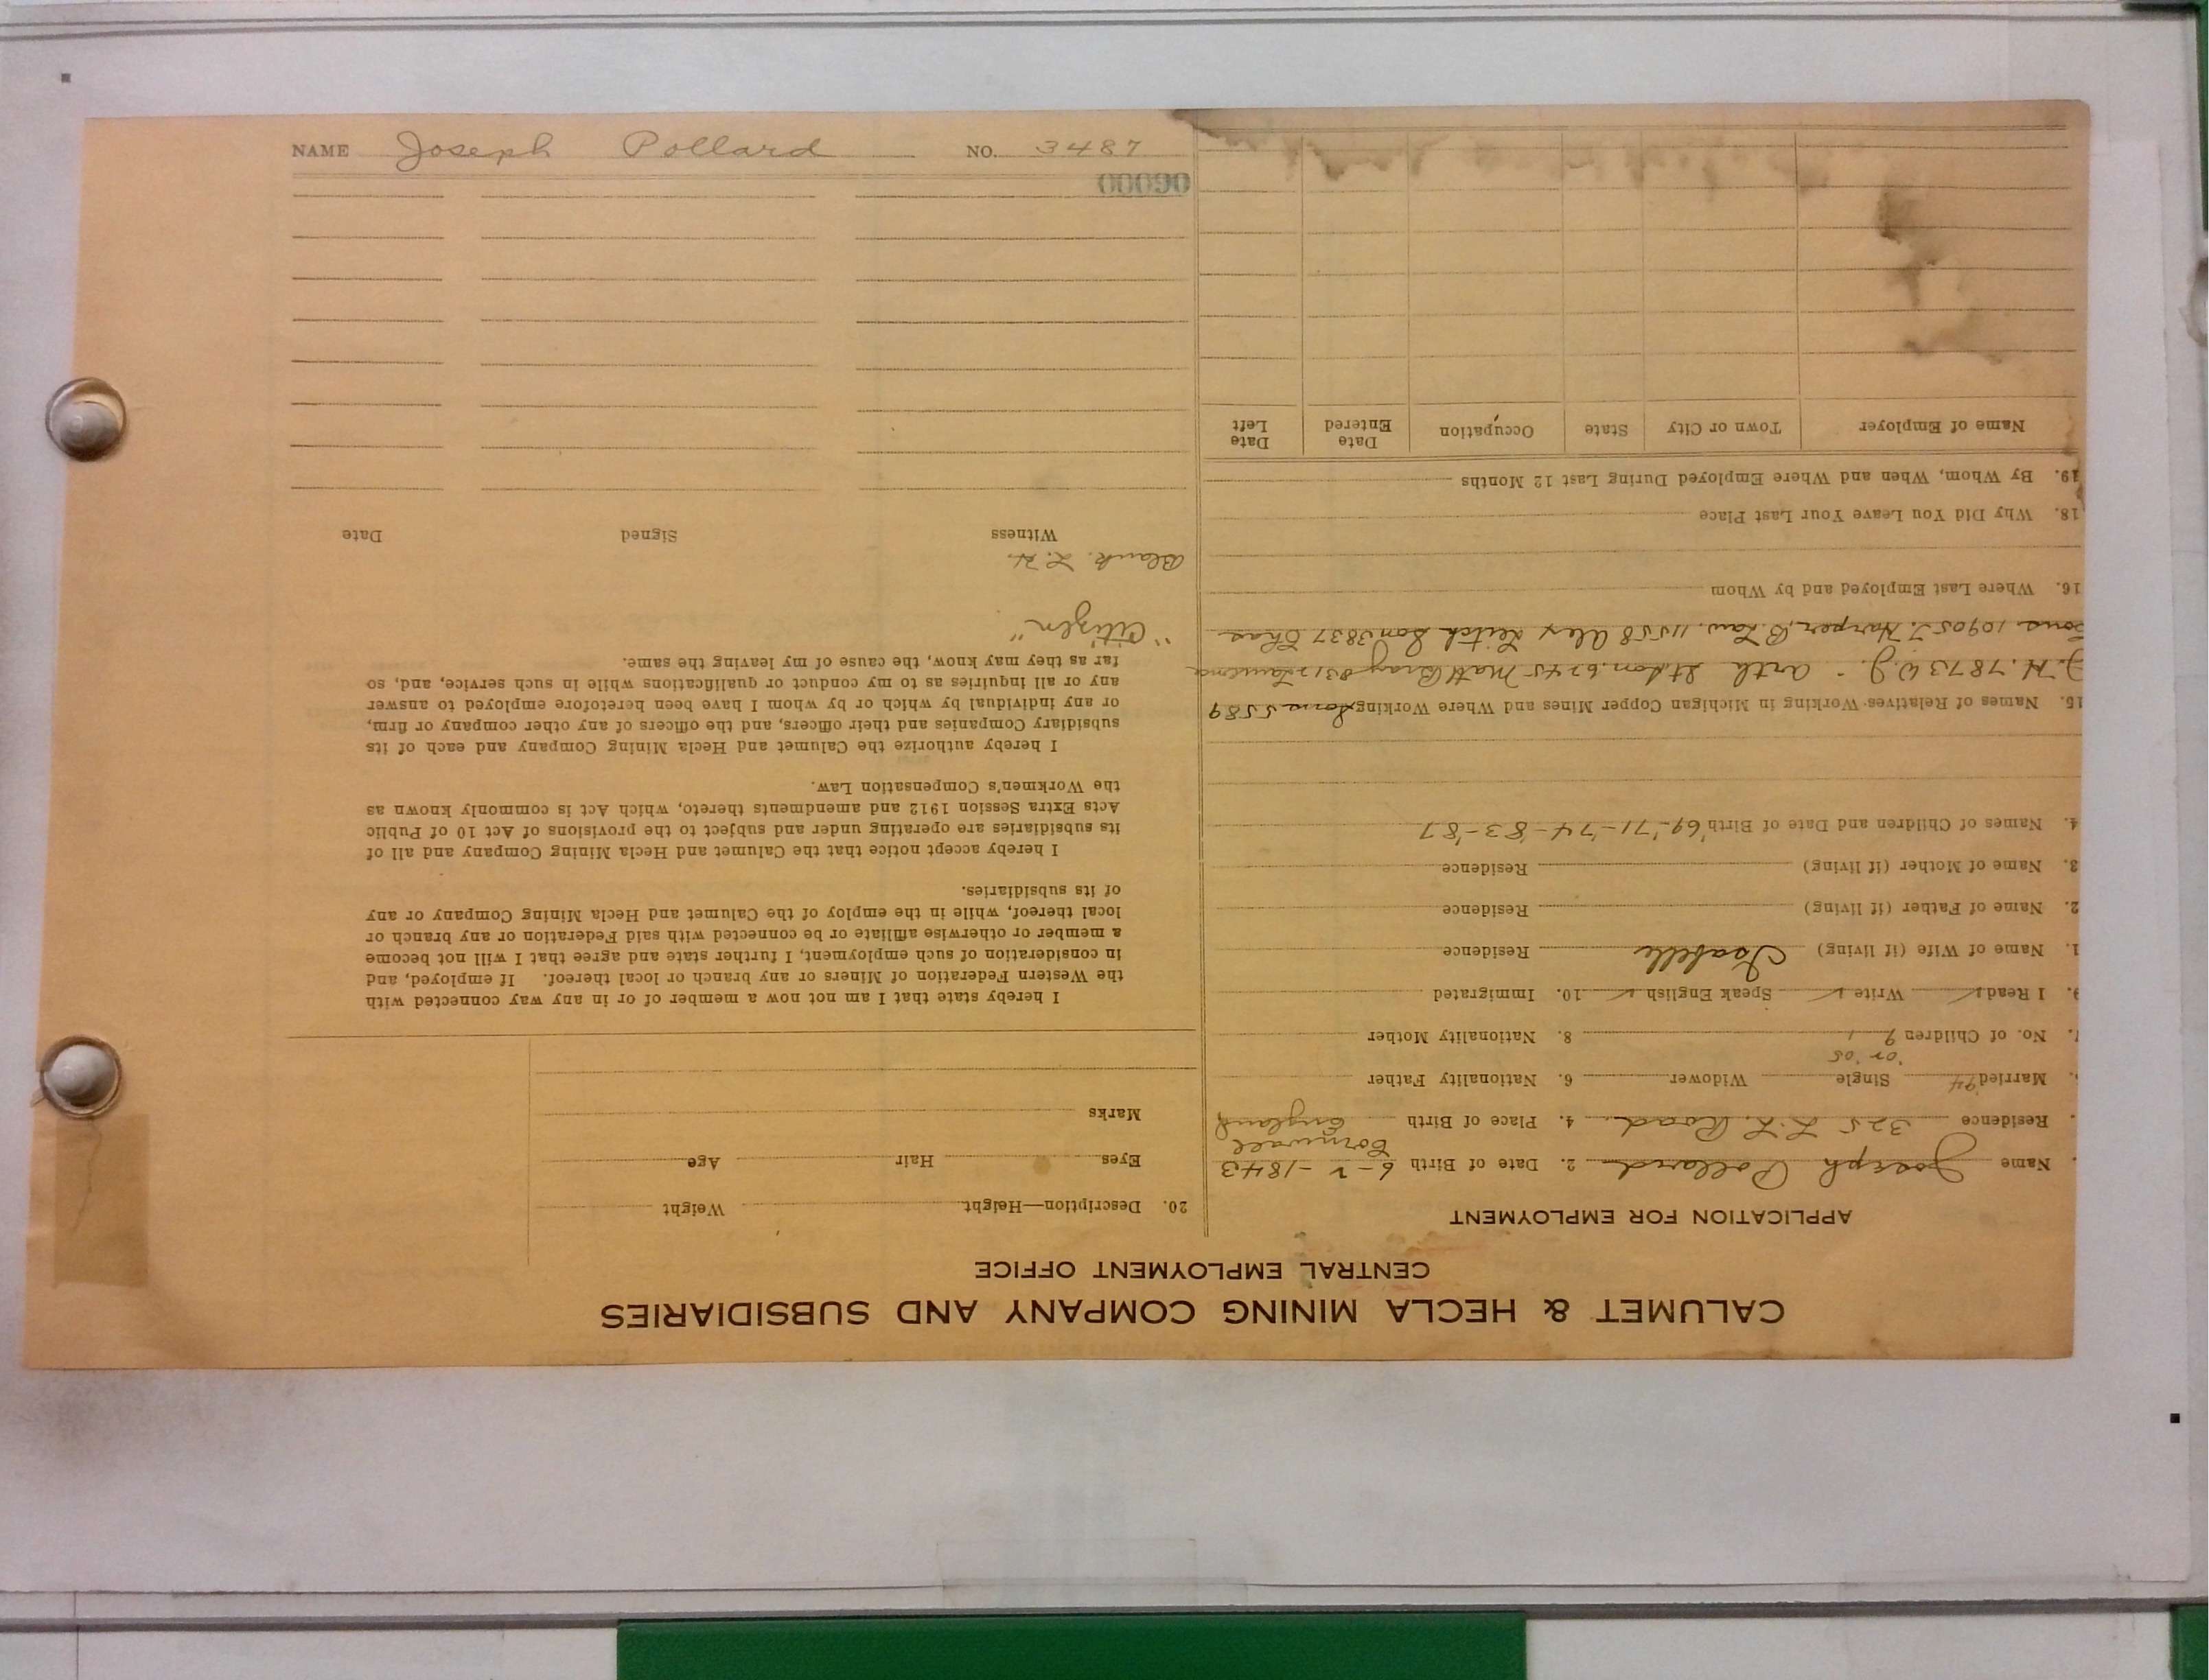 CALUMET & HECLA MINING COMPANY AND SUBSIDIARIES
CENTRAL EMPLOYMENT OFFICE
APPLICATION FOR EMPLOYMENT
. Name Joseph Pollard 2. Date of Birth 6-2-1843
Cornwall
. Residence 325 L.L. Road. 4. Place of Birth England
. Married '94 Single Widower 6. Nationality Father
'or '05
7. No. of Children 9 8. Nationality Mother
9. I Read ✓ Write ✓ Speak English ✓ 10. Immigrated
1. Name of Wife (if living) Isabelle Residence
2. Name of Father (if living) Residence
3. Name of Mother (if living) Residence
4. Names of Children and Date of Birth '69-'71-'74-'83-'87
15. Names of Relatives Working in Michigan Copper Mines and Where Working Sons 5589
J.H. 7873 W.J. " Arth 6245 Matt Bray 8312
Sons 10905 T. Harper, B. Law. 11558 Alex Leitch Son 3837 Chas
16. Where Last Employed and by Whom
18. Why Did You Leave Your Last Place
19. By Whom, When and Where Employed During Last 12 Months
Name of Employer Town or City State Occupation Date Entered Date Left
20. Description—Height Weight
Eyes Hair Age
Marks
I hereby state that I am not now a member of or in any way connected with
the Western Federation of Miners or any branch or local thereof. If employed, and
in consideration of such employment, I further state and agree that I will not become
a member or otherwise affiliate or be connected with said Federation or any branch or
local thereof, while in the employ of the Calumet and Hecla Mining Company or any
of its subsidiaries.
I hereby accept notice that the Calumet and Hecla Mining Company and all of
its subsidiaries are operating under and subject to the provisions of Act 10 of Public
Acts Extra Session 1912 and amendments thereto, which Act is commonly known as
the Workmen's Compensation Law.
I hereby authorize the Calumet and Hecla Mining Company and each of its
subsidiary Companies and their officers, and the officers of any other company or firm,
or any individual by which or by whom I have been heretofore employed to answer
any or all inquiries as to my conduct or qualifications while in such service, and, so
far as they may know, the cause of my leaving the same.
"Citizen"
Blank. L.H.
Witness Signed Date
00090
NAME Joseph Pollard NO. 3487